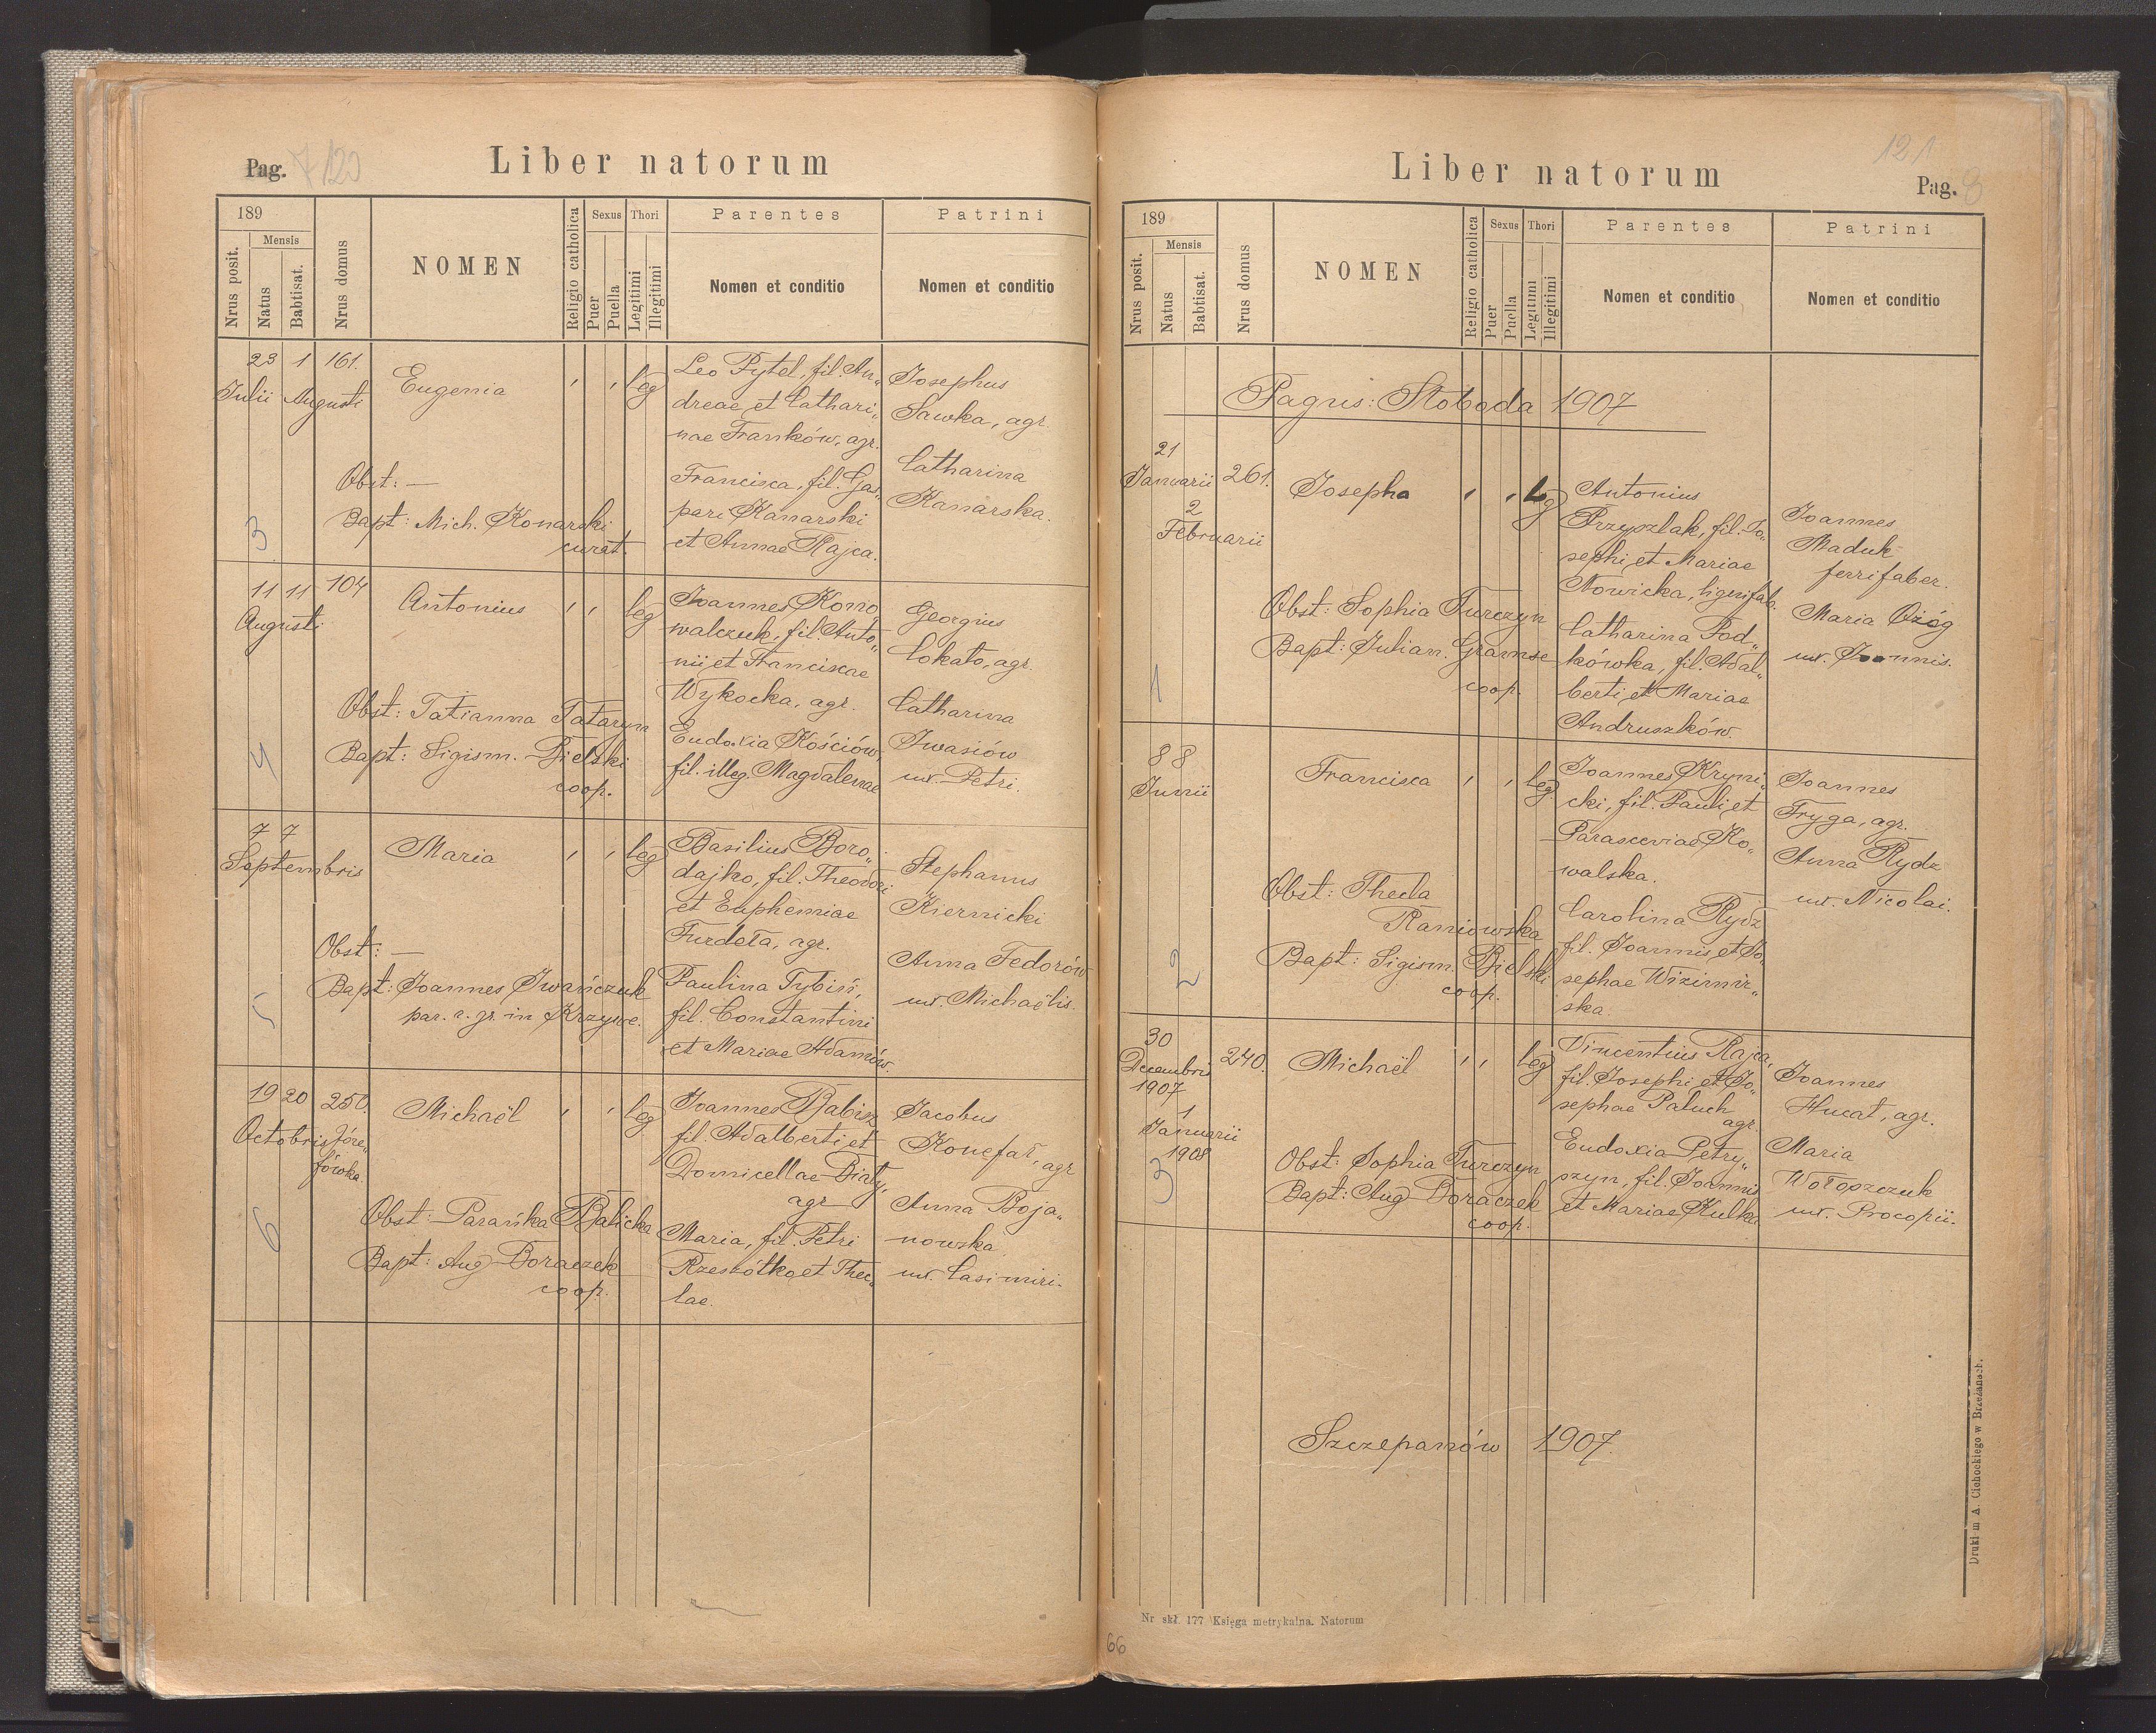 Pag. 7 120
Liber natorum
189
Mensis
Nrus posit.
Natus
Babtisat.
Nrus domus
NOMEN
Religio catholica
Sexus
Puer
Puella
Thori
Legitimi
Illegitimi
Parentes
Nomen et conditio
Patrini
Nomen et conditio
23 1 161.
Julii Augusti
Eugenia
leg
Leo Pytel, fil. An„
dreae et Cathari„
nae Franków, agr.
Francisca, fil. Gas„
pari Kamarski
et Annae Rajca.
Josephus
Sawka, agr.
Catharina
Kamarska.
Obst: —
Bapt: Mich. Konarski
curat.
3
11 11 104
Augusti
Antonius
leg
Joannes Kono
walczuk, fil. Anto„
nii et Franciscae
Wykocka, agr.
Eudoxia Kościów,
fil. illeg. Magdalenae
Georgius
Cokato, agr.
Catharina
Iwasiów
ux. Petri.
Obst: Tatianna Tataryn
Bapt: Sigism. Bielski
coop.
4
7 7
Septembris
Maria
leg
Basilius Boro„
dajko, fil. Theodori
et Euphemiae
Furdeła, agr.
Paulina Tybiń,
fil. Constantini
et Mariae Adamów.
Stephanus
Kiernicki
Anna Fedorów
ux. Michaëlis.
Obst: —
Bapt: Joannes Iwańczuk
par. r. gr. in Krzywe.
5
19 20 250.
Octobris Józe„
fówka.
Michaël
leg
Joannes Babisz
fil. Adalberti et
Domicellae Biały,
agr
Maria, fil. Petri
Rzeszótko et Thec„
lae.
Jacobus
Konefał, agr
Anna Boja„
nowska
ux. Casimiri.
Obst: Parańka Balicka
Bapt: Aug Boraczek
coop.
6
121
Liber natorum
Pag. 8
189
Mensis
Nrus posit.
Natus
Babtisat.
Nrus domus
NOMEN
Religio catholica
Sexus
Puer
Puella
Thori
Legitimi
Illegitimi
Parentes
Nomen et conditio
Patrini
Nomen et conditio
Pagus: Słoboda 1907
21
Januarii 261.
2
Februarii
Josepha
Leg
Antonius
Przyszlak, fil. Jo„
sephi, et Mariae
Nowicka, lignifab.
Catharina Pod„
kówka, fil. Adal„
berti, et Mariae
Andruszków.
Joannes
Maduk
ferrifaber.
Maria Ożóg
ux. Joannis.
Obst: Sophia Turczyn
Bapt: Julian. Gramse
coop.
1
8 8
Junii
Francisca
leg
Joannes Kryni„
cki, fil. Pauli, et
Parasceviae Ko„
walska.
Carolina Rydz
fil. Joannis, et Jo„
sephae Wizimir„
ska.
Joannes
Fryga, agr.
Anna Rydz
ux. Nicolai.
Obst: Thecla
Raniowska
Bapt: Sigism. Bielski
coop.
2
30
Decembris 240.
1907
1
Januarii
1908
Michaël
leg
Vincentius Rajca,
fil. Josephi et Jo„
sephae Paluch
agr.
Eudoxia Petry„
szyn, fil. Joannis
et Mariae Kulka
Joannes
Hucat, agr.
Maria
Wołoszczuk
ux. Procopii.
Obst: Sophia Turczyn
Bapt: Aug Boraczek
coop.
3
Szczepanów 1907.
Druki m A. Cichockiego w Brzeżanach.
Nr skł. 177 Księga metrykalna. Natorum
66